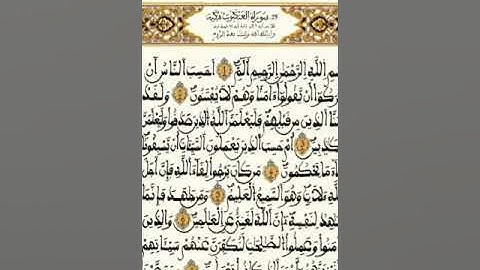 29 سورة العنكبوت مكية
وآياتها 69 نزلت بعد الروم
سم الله الرحمن الرحيم الم أحسب الناس أن
ركوا أن يقولوا ءامنا وهم لا يفتنون ولقد
نا الذين من قبلهم فليعلمن الله الذين صدقوا وليعلمن
كذبين أم حسب الذين يعملون السيئات أن يسبقونا
ء ما يحكمون من كان يرجوا لقاء الله فإن أجل
لله لآت وهو السميع العليم ومن جهد فإنما
هد لنفسه إن الله لغني عن العلمين والذين
منوا وعملوا الصلحت لنكفرن عنهم سيئاتهم